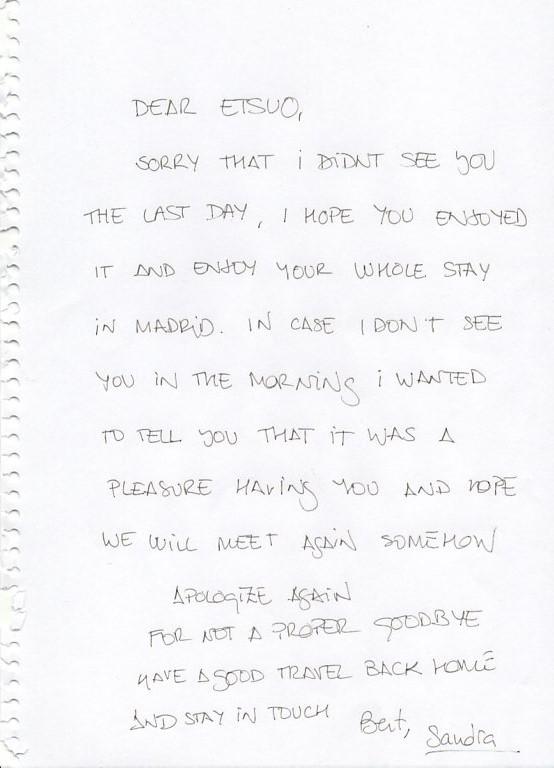 DEAR ETSUO,
SORRY THAT i DiDNT SEE YOU
THE LAST DAY, I HOPE YOU ENJOYED
IT AND ENJOY YOUR WHOLE STAY
iN MADRiD. IN CASE I DON'T SEE
YOU iN THE MORNiNG i WANTED
TO TELL YOU THAT iT WAS A
PLEASURE HAViNG YOU AND HOPE
WE WiLL MEET AGAiN SOMEHOW
APOLOGiZE AGAiN
FOR NOT A PROPER GOODBYE
HAVE A GOOD TRAVEL BACK HOME
AND STAY iN TOUCH
Bert, Sandra